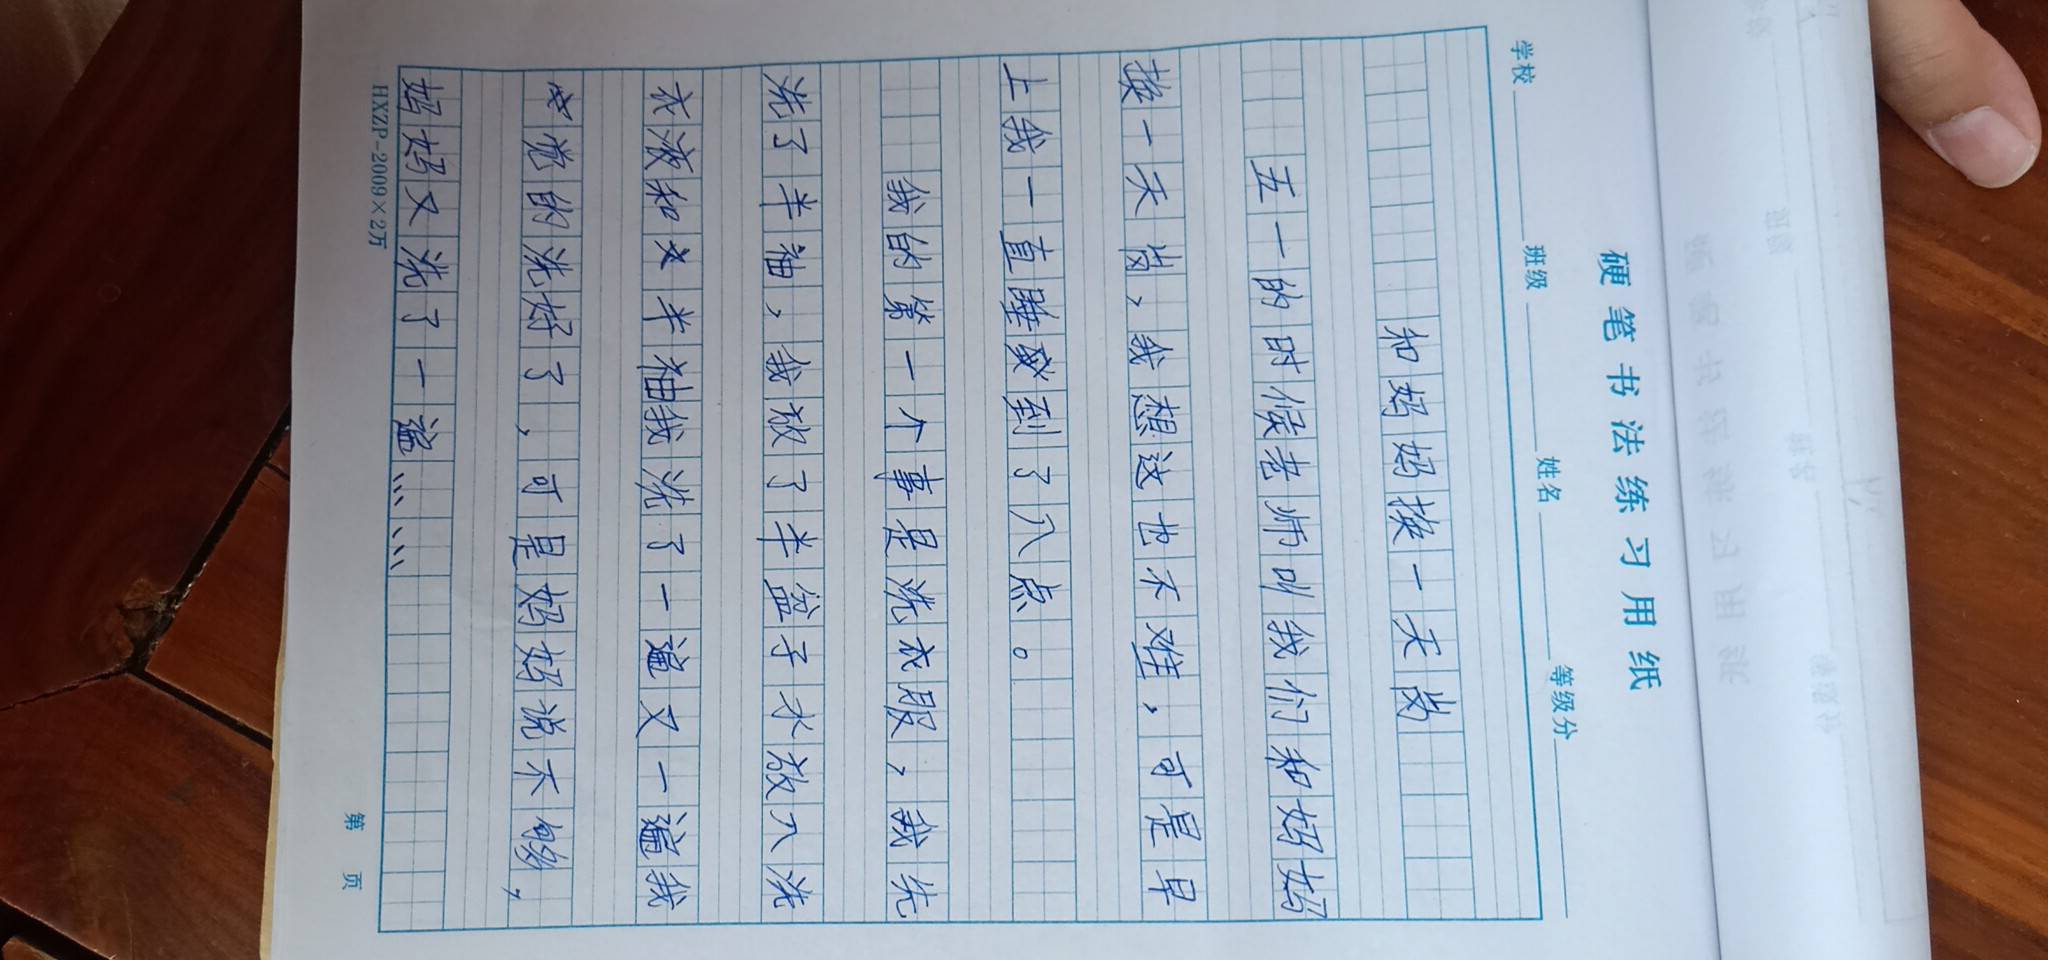 硬笔书法练习用纸
学校 班级 姓名 等级分
和妈妈换一天岗
五一的时候老师叫我们和妈妈
换一天岗,我想这也不难,可是早
上我一直睡到了八点。
我的第一个事是洗衣服,我先
洗了半袖,我放了半盆子水放入洗
衣液和半袖我洗了一遍又一遍我
觉的洗好了,可是妈妈说不够,
妈妈又洗了一遍……
HXZP-2009×2万
第 页